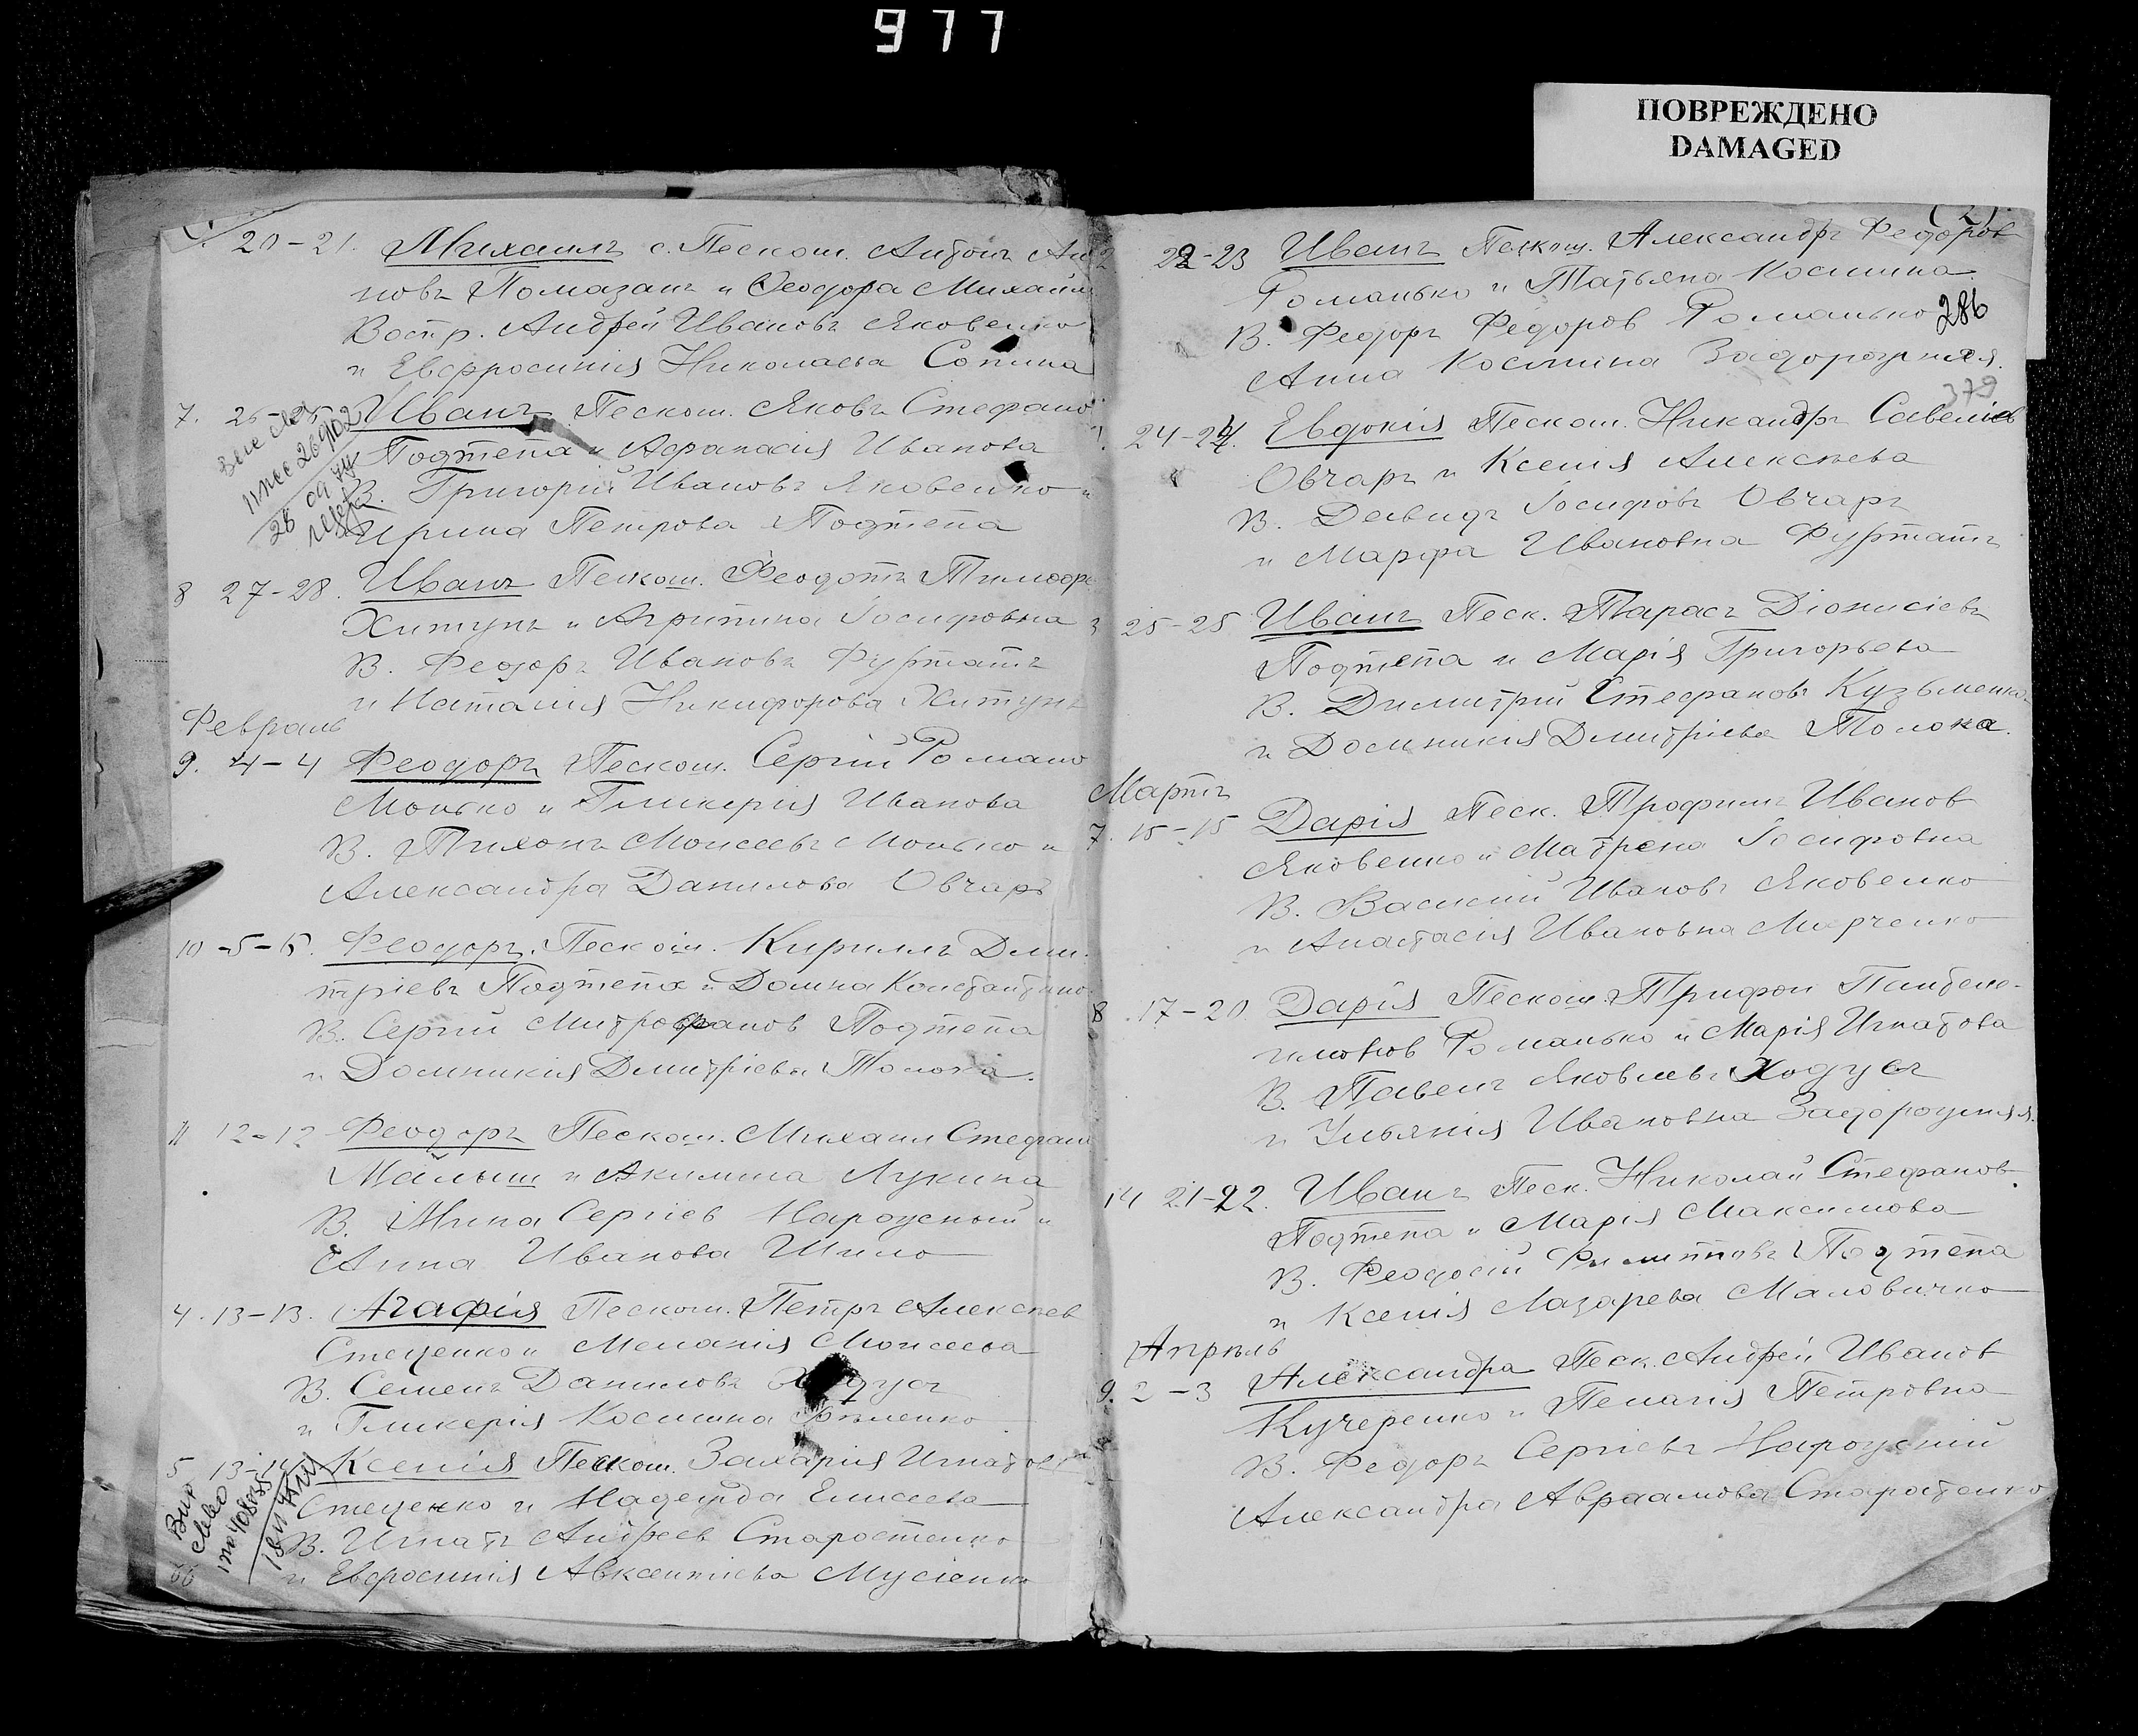 977
ПОВРЕЖДЕНО
DAMAGED
20-21. Михаилъ с. Пескош. Антонъ Ан
новъ Помазанъ и Феодора Михаил
Воспр. Андрей Ивановъ Яковенко
и Евфросинія Николаева Сопина
7. 25-25 Иванъ Пескош. Яковъ Стефано
Подтепа и Афанасія Иванова
В. Григорій Ивановъ Яковенко и
Ирина Петрова Подтепа
8 27-28. Иванъ Пескош. Феодотъ Тимофе
Хитунъ и Агрипина Іосифовна
В. Федоръ Ивановъ Фурматъ
и Наталія Никифорова Хитунъ
Февраль
9. 4-4 Феодоръ Пескош. Сергій Романо
Монько и Гликерія Иванова
В. Тихонъ Моисеевъ Монько и
Александра Данилова Овчаръ
10 5-5. Феодоръ. Пескош. Кириллъ Дми-
тріевъ Подтепа и Домна Константино
В. Сергій Митрофанов Подтепа
и Домникія Дмитріева Толока.
11 12-12 Феодоръ Пескош. Михаил Стефан
Малыш и Акилина Лукина
В. Мина Сергіев Нарожный и
Анна Иванова Шило
4. 13-13. Агафія Пескош. Петръ Алексѣев
Стеценко и Меланія Моисеева
В. Семенъ Даниловъ
и Гликерія Космина
5 13-14 Ксенія Пескош. Захарія Игнатов
Стеценко и Надежда Елисеева
В. Игнатъ Андреев Старостенко
и Евфросинія Авксентіева Мусіенко
(2).
22-23 Иванъ Пескош. Александръ Федоров
Романько и Татьяна Космина
В. Федоръ Федоров Романько 286
Анна Космина Задорожняя.
379
24-24. Евдокія Пескош. Никандръ Савеліев
Овчаръ и Ксенія Алексѣева
В. Давидъ Іосифовъ Овчаръ
и Марфа Ивановна Фурматъ
3 25-25 Иванъ Песк. Тарасъ Діонисіевъ
Подтепа и Марія Григорьева
В. Димитрій Стефановъ Кузьменко
и Домникія Дмитріева Толока.
Мартъ
7. 15-15 Дарія Песк. Трофимъ Иванов
Яковенко и Матрена Іосифовна
В. Василій Ивановъ Яковенко
и Анастасія Ивановна Марченко
8. 17-20 Дарія Пескош. Трифон Пантеле-
имонов Романько и Марія Игнатова
В. Павелъ Яковлевъ Ходусъ
и Ульянія Ивановна Задорожняя.
14 21-22. Иванъ Песк. Николай Стефанов
Подтепа и Марія Максимова
В. Феодосій Филипповъ Подтепа
и Ксенія Лазарева Маловичко
Апрѣль
9. 2-3 Александра Песк. Андрей Иванов
Кучеренко и Пелагія Петровна
В. Федоръ Сергіевъ Нарожній
Александра Авраамова Старостенко